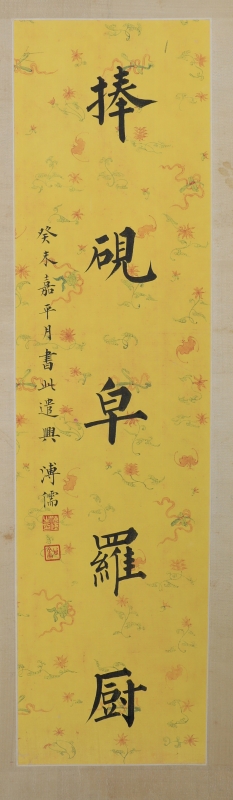 捧硯皁羅厨
癸未嘉平月書此遣興 溥儒